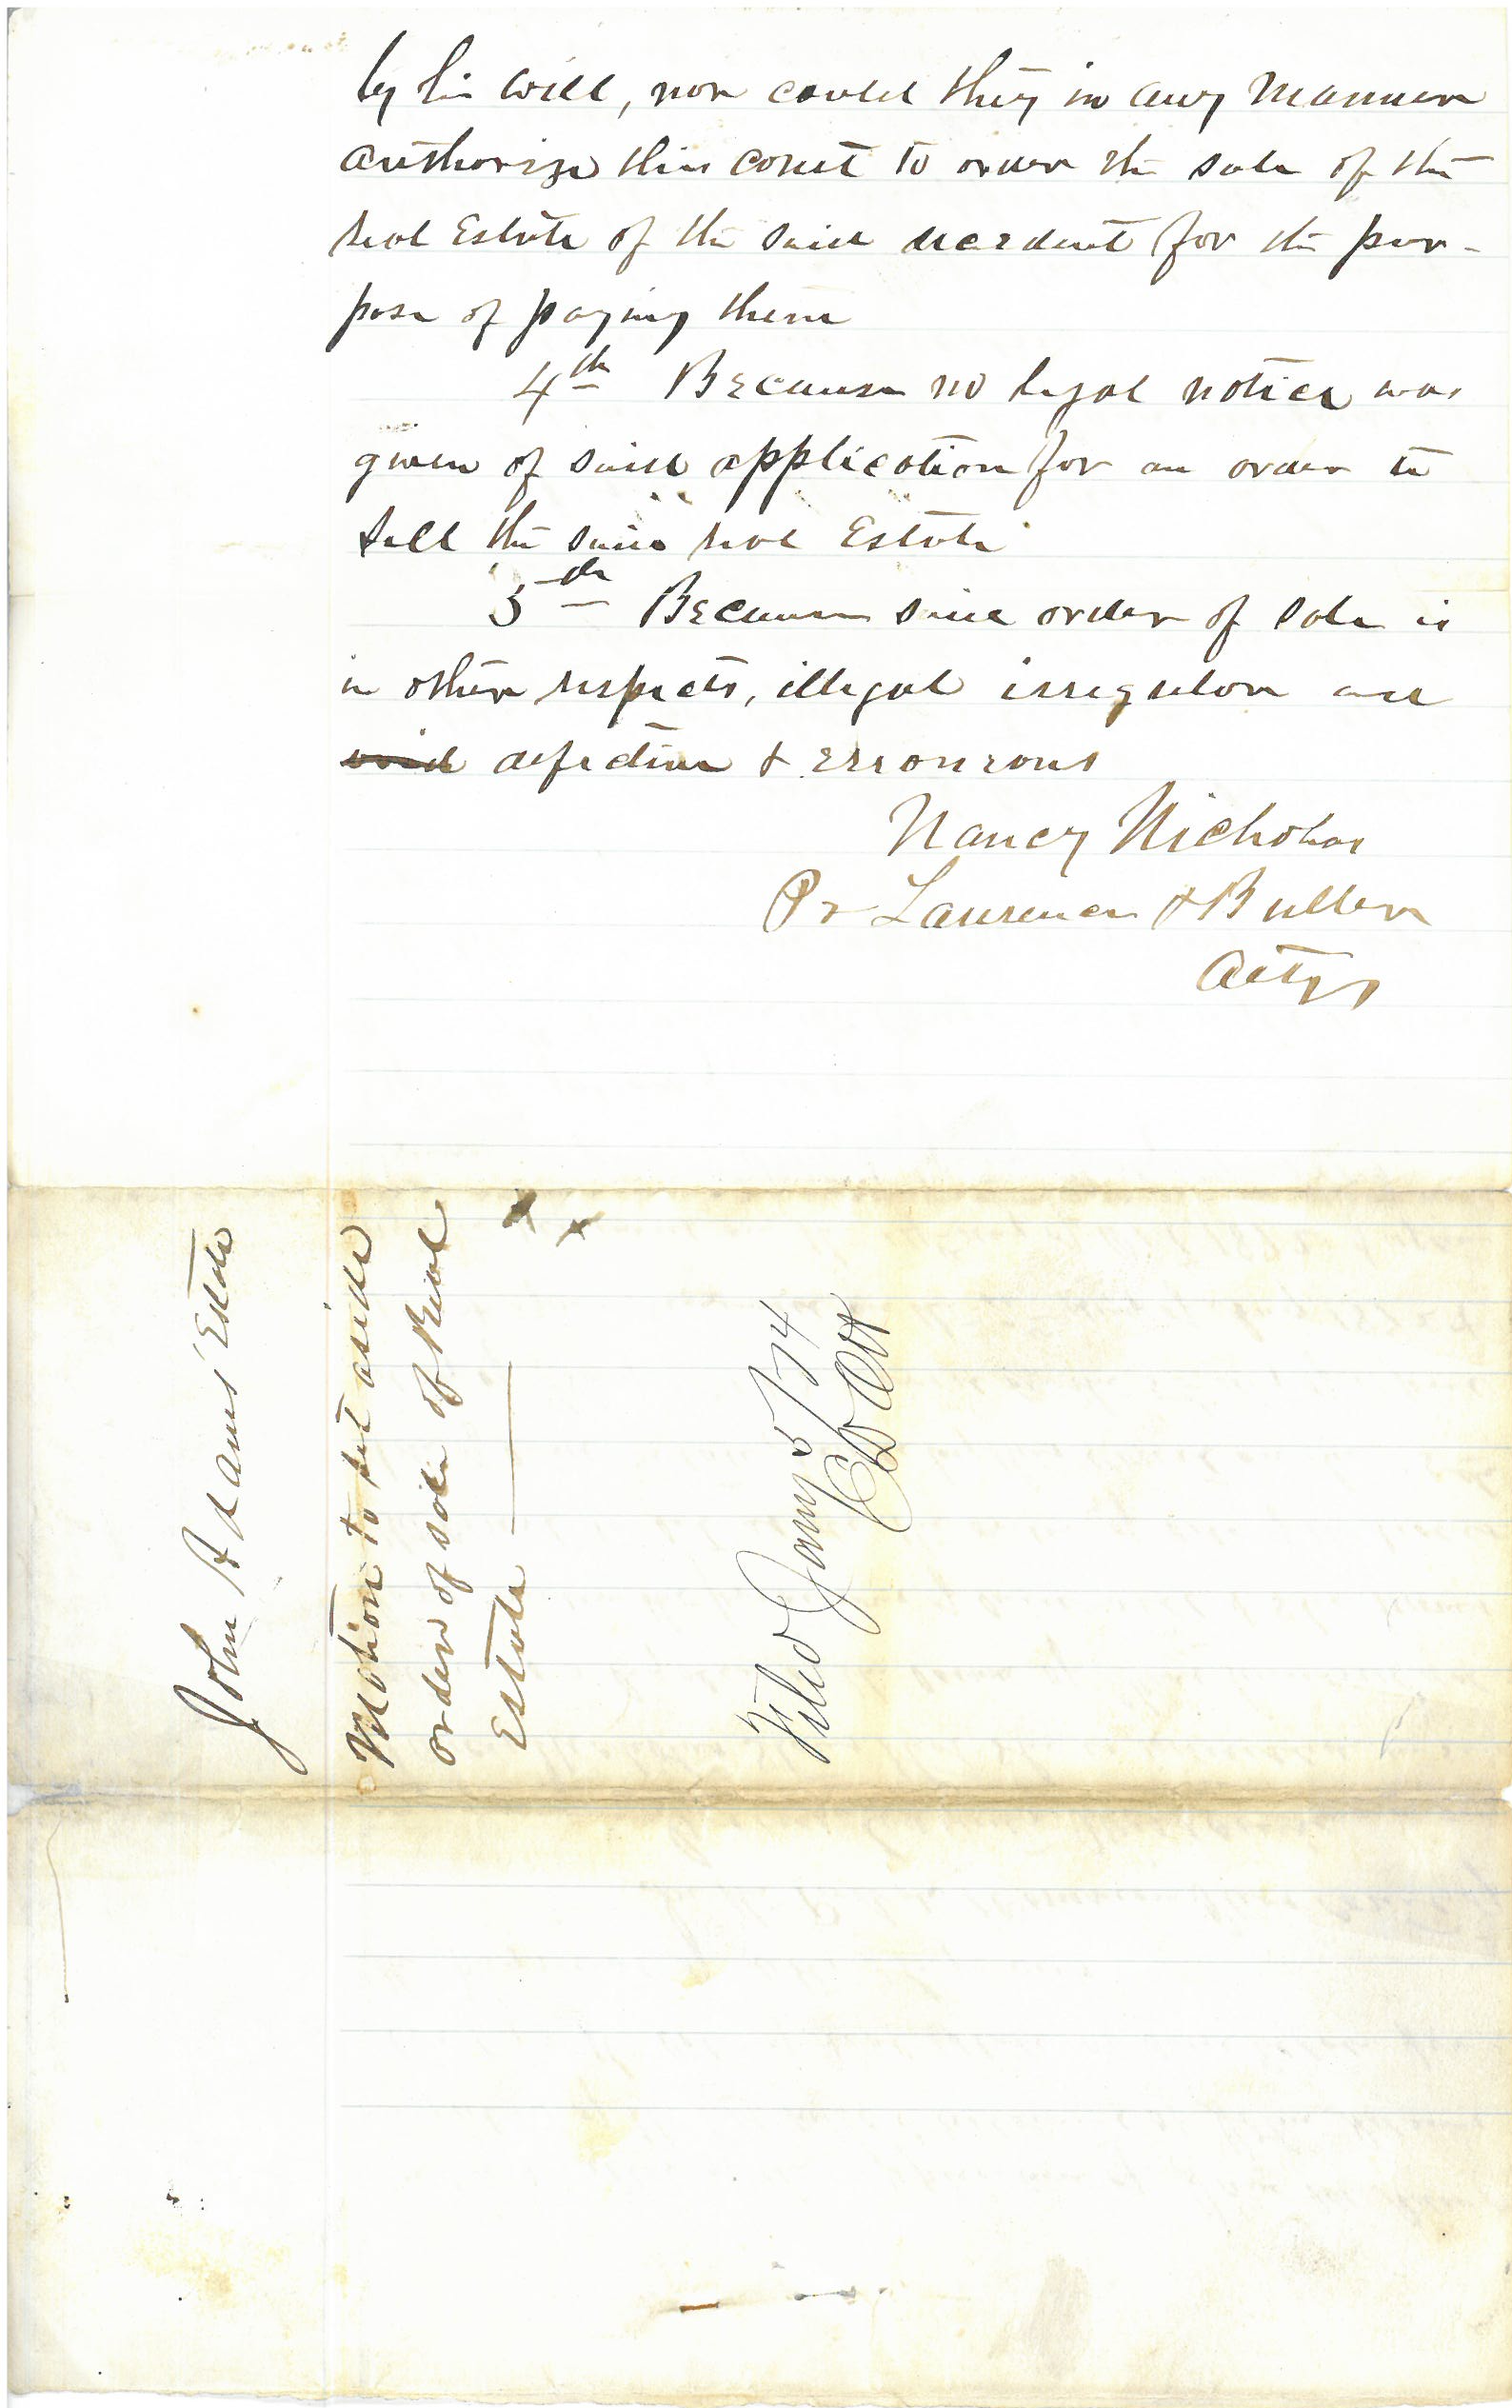 by his will, nor could they in any manner
authorize this court to order the sale of the
real Estate of the said decedent for the pur-
pose of paying them
4th Because no legal notice was
given of said application for an order to
sell the said real Estate
5th Because said order of sale is
in other respects, illegal irregular and
void defective & erroneous
Nancy Nicholas
Pr Laurence & Buller
Attys
John Adams' Estate
Motion to set aside
order of sale of Real
Estate
Filed Jany 5/74